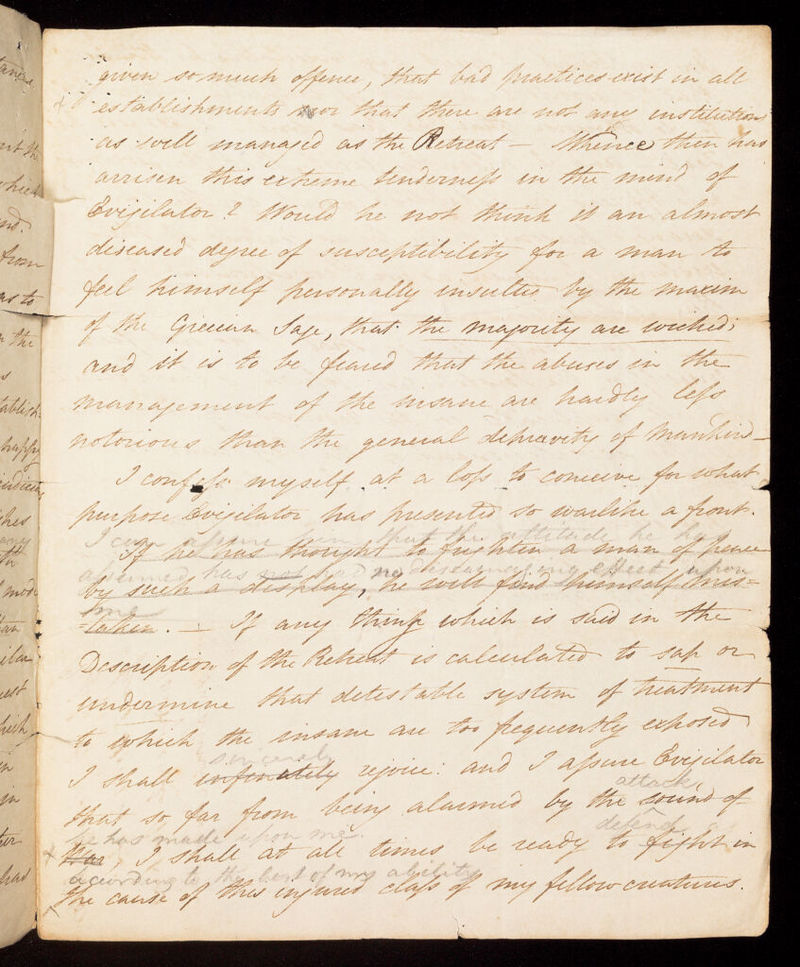 given so much offence, that bad practices exist in all
establishments nor that there are not any institutions
as well managed as the Retreat — Whence then has
arrisen this extreme tenderness in the mind of
Evigilator? Would he not think it an almost
diseased degree of susceptibility for a man to
feel himself personally insulted by the maxim
of the Grecian Sage, that the majority are wicked;
and it is to be feared that the abuses in the
management of the insane are hardly less
notorious than the general depravity of Mankind —
I confess myself at a loss to conceive for what
purpose Evigilator has presented so warlike a front.
I can assure him that the attitude he has
If he has thought to frighten a man of peace
assumed has not had no disencouraging effect upon
by such a display, he will find himself mis=
me
=taken. — If any thing which is said in the
Description of the Retreat is calculated to sap or
undermine that detestable system of treatment
to which the insane are too frequently exposed
sincerely
I shall infinitely rejoice: and I assure Evigilator
attack,
that so far from being alarmed by the sound of
he has made upon me. defend
war, I shall at all times be ready to fight in
according to the best of my ability
the cause of this injured class of my fellow creatures.